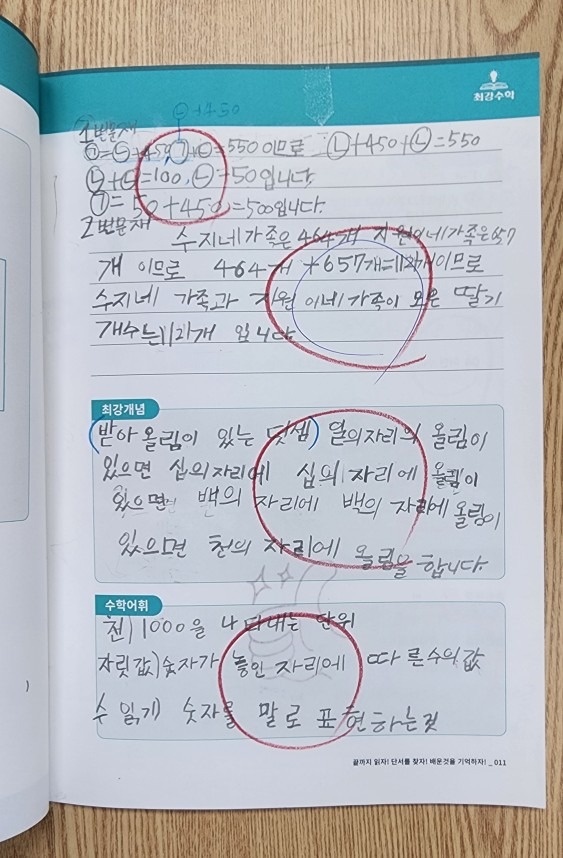 최강수학
㉡+450
1번문제
㉠=㉡+450 ㉠+㉡=550 이므로 ㉡+450+㉡=550
㉡+㉡=100, ㉡=50입니다.
㉠= 50+450=500입니다.
2번문제 수지네 가족은 464개 지원이네 가족은 657
개 이므로 464개 +657개=1121개이므로
수지네 가족과 지원 이네 가족이 모은 딸기
개수는 1121개 입니다
최강개념
(받아올림이 있는 덧셈) 일의자리의 올림이
있으면 십의 자리에 십의 자리에 올림이
있으면 백의 자리에 백의 자리에 올림이
있으면 천의 자리에 올림을 합니다.
수학어휘
천) 1000을 나타내는 단위
자릿값) 숫자가 놓인 자리에 따른 수의 값
수 읽기 숫자를 말로 표현하는것
끝까지 읽자! 단서를 찾자! 배운것을 기억하자! _ 011